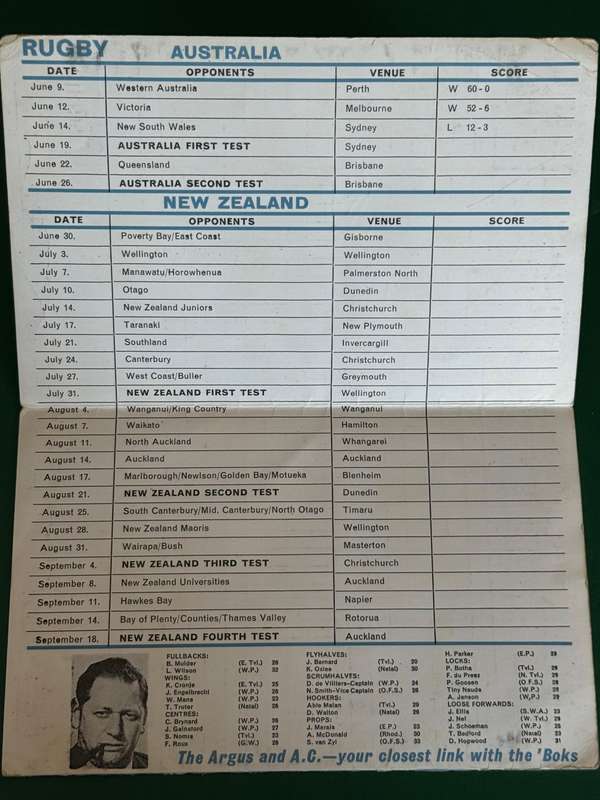 RUGBY AUSTRALIA
DATE OPPONENTS VENUE SCORE
June 9. Western Australia Perth W 60-0
June 12. Victoria Melbourne W 52-6
June 14. New South Wales Sydney L 12-3
June 19. AUSTRALIA FIRST TEST Sydney
June 22. Queensland Brisbane
June 26. AUSTRALIA SECOND TEST Brisbane
NEW ZEALAND
DATE OPPONENTS VENUE SCORE
June 30. Poverty Bay/East Coast Gisborne
July 3. Wellington Wellington
July 7. Manawatu/Horowhenua Palmerston North
July 10. Otago Dunedin
July 14. New Zealand Juniors Christchurch
July 17. Taranaki New Plymouth
July 21. Southland Invercargill
July 24. Canterbury Christchurch
July 27. West Coast/Buller Greymouth
July 31. NEW ZEALAND FIRST TEST Wellington
August 4. Wanganui/King Country Wanganui
August 7. Waikato Hamilton
August 11. North Auckland Whangarei
August 14. Auckland Auckland
August 17. Marlborough/Newlson/Golden Bay/Motueka Blenheim
August 21. NEW ZEALAND SECOND TEST Dunedin
August 25. South Canterbury/Mid. Canterbury/North Otago Timaru
August 28. New Zealand Maoris Wellington
August 31. Wairapa/Bush Masterton
September 4. NEW ZEALAND THIRD TEST Christchurch
September 8. New Zealand Universities Auckland
September 11. Hawkes Bay Napier
September 14. Bay of Plenty/Counties/Thames Valley Rotorua
September 18. NEW ZEALAND FOURTH TEST Auckland
FULLBACKS:
B. Mulder (E. Tvl.) 26
L. Wilson (W.P.) 32
WINGS:
K. Cronje (E. Tvl.) 25
J. Engelbrecht (W.P.) 26
W. Mans (W.P.) 23
T. Truter (Natal) 26
CENTRES:
C. Brynard (W.P.) 26
J. Gainsford (W.P.) 27
S. Nomis (Tvl.) 23
F. Roux (G.W.) 26
FLYHALVES:
J. Barnard (Tvl.) 20
K. Oxlee (Natal) 30
SCRUMHALVES:
D. de Villiers-Captain (W.P.) 24
N. Smith-Vice Captain (O.F.S.) 26
HOOKERS:
Abie Malan (Tvl.) 29
D. Walton (Natal) 26
PROPS:
J. Marais (E.P.) 23
A. McDonald (Rhod.) 30
S. van Zyl (O.F.S.) 33
H. Parker (E.P.) 29
LOCKS:
P. Botha (Tvl.) 26
F. du Preez (N. Tvl.) 29
P. Goosen (O.F.S.) 28
Tiny Naude (W.P.) 28
A. Janson (W.P.) 29
LOOSE FORWARDS:
J. Ellis (S.W.A.) 23
J. Nel (W. Tvl.) 29
J. Schoeman (W.P.) 25
T. Bedford (Natal) 23
D. Hopwood (W.P.) 31
The Argus and A.C.—your closest link with the 'Boks